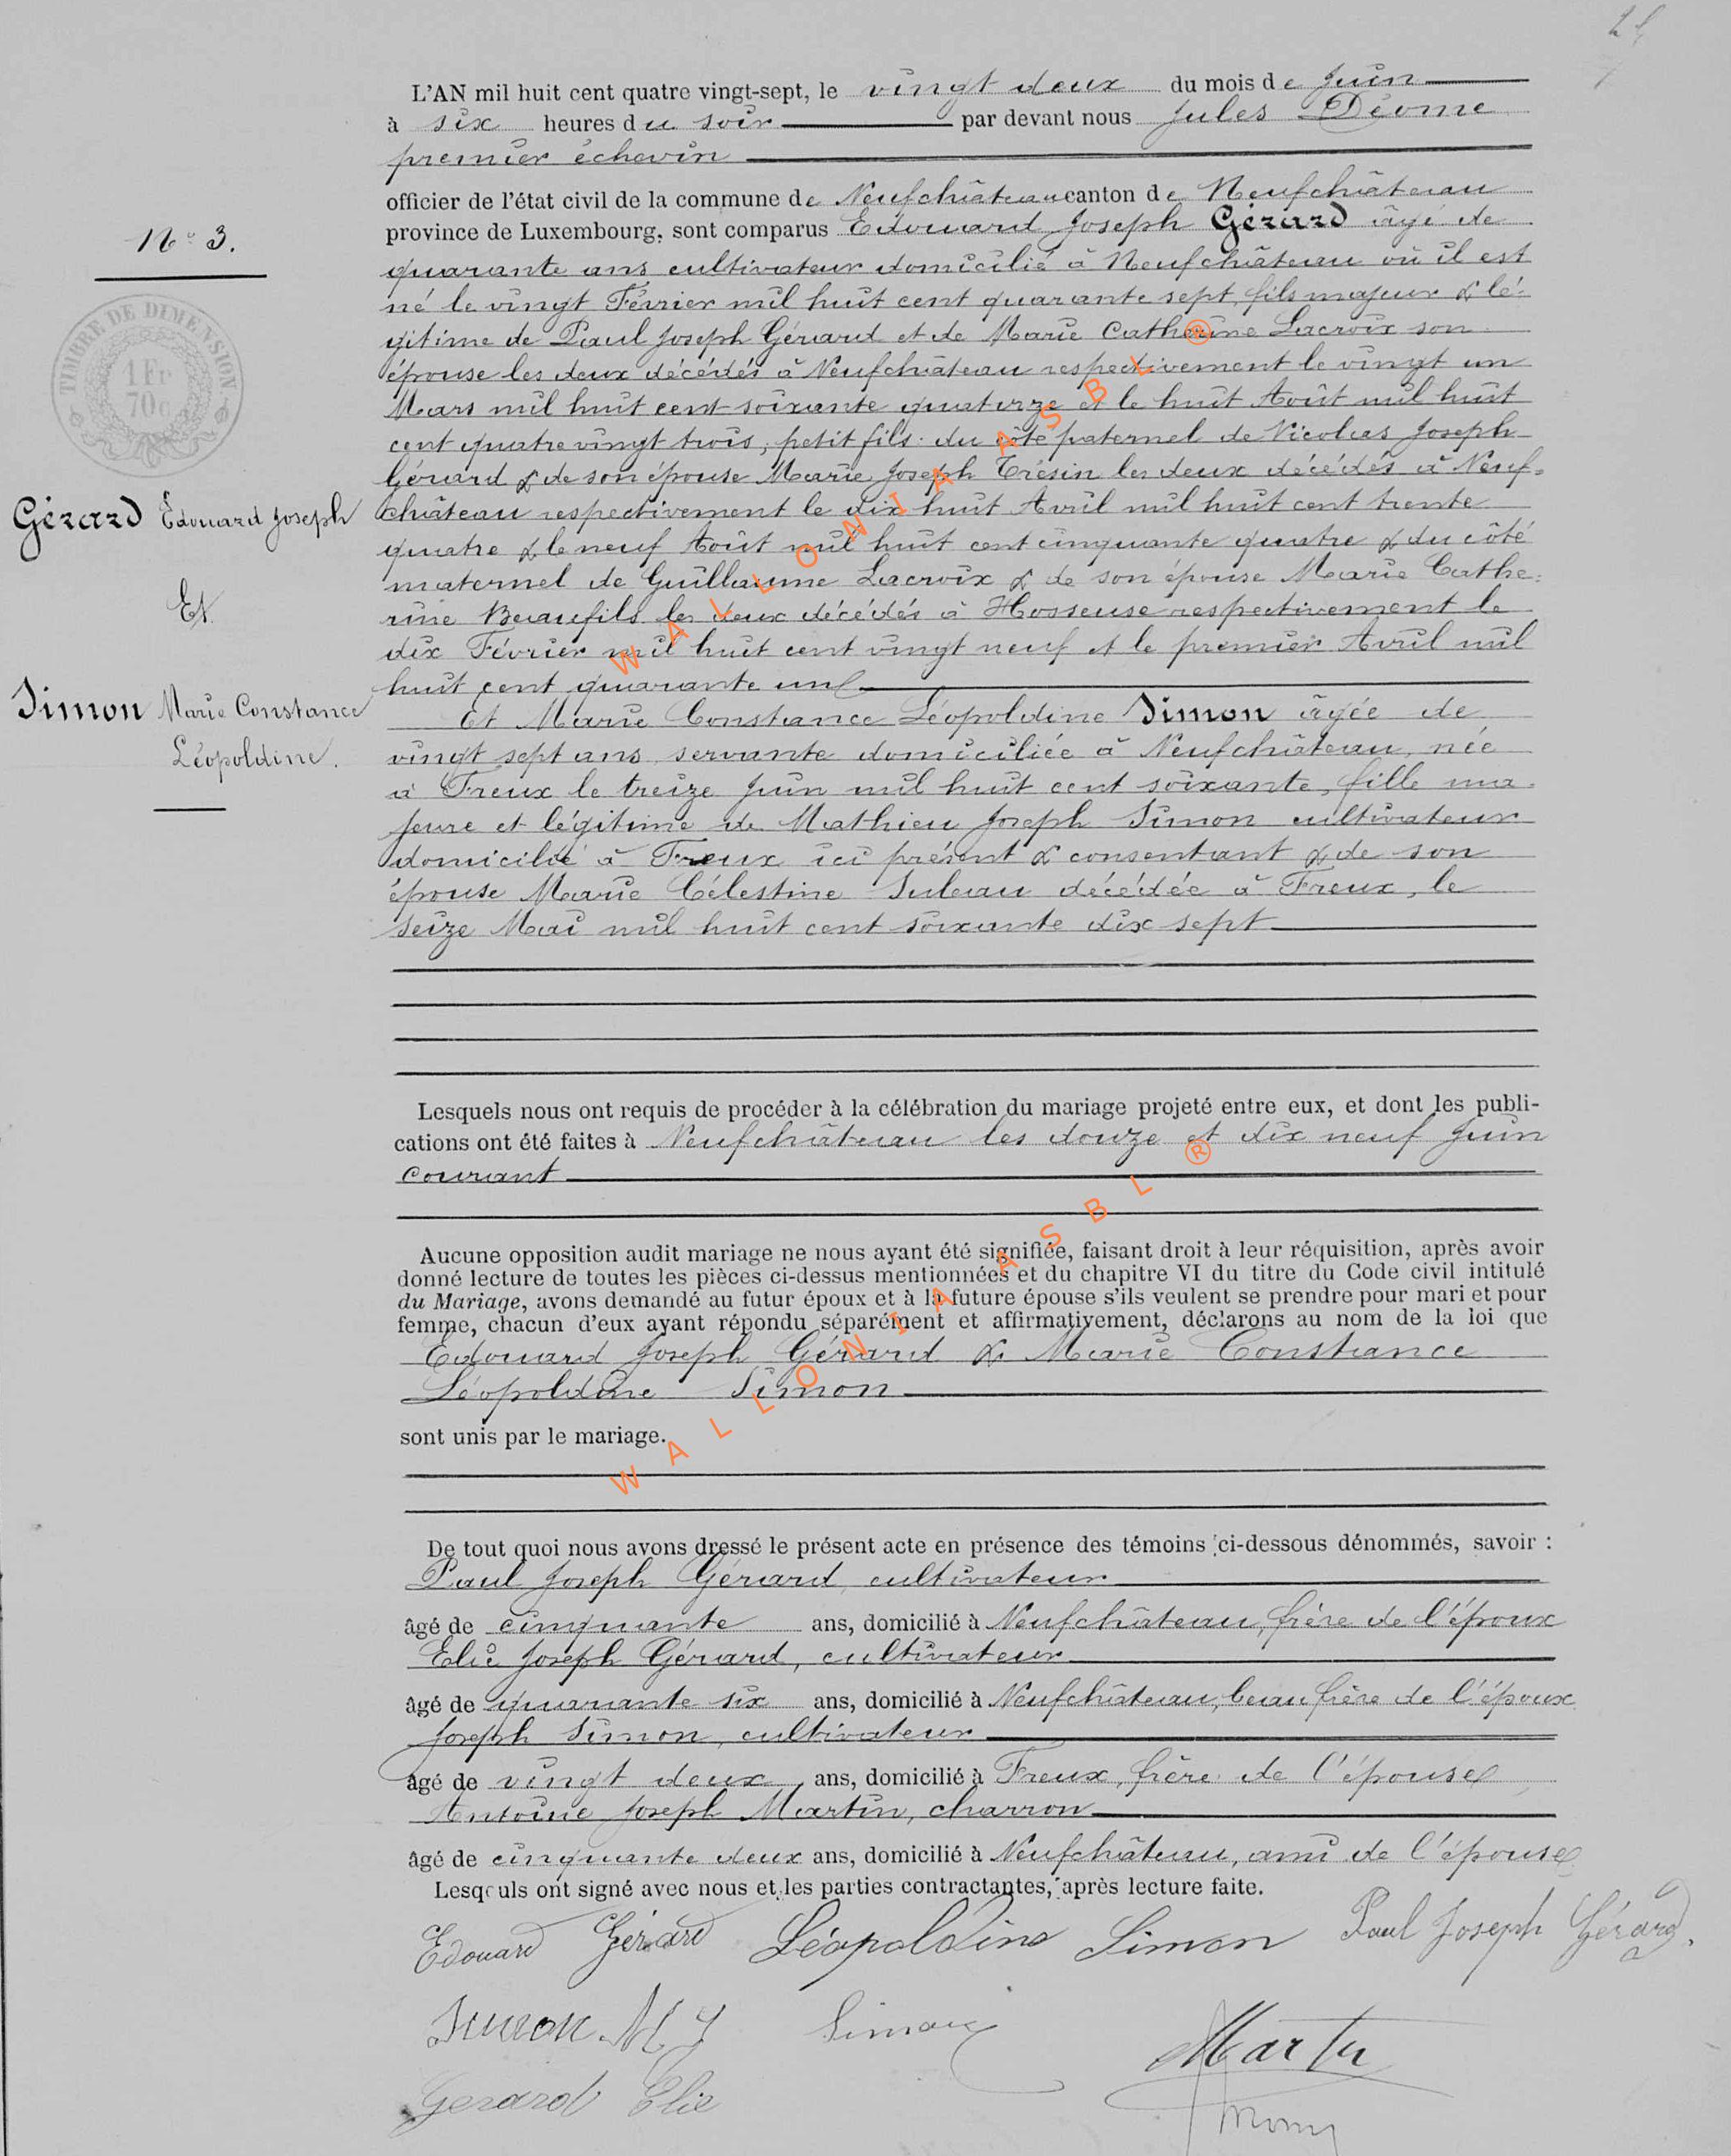 L'AN mil huit cent quatre vingt-sept, le vingt deux du mois de Juin
à six heures du soir par devant nous Jules Déome
premier échevin
officier de l'état civil de la commune de Neufchâteau canton de Neufchâteau
N° 3.
province de Luxembourg, sont comparus Edouard Joseph Gérard âgé de
quarante ans cultivateur domicilié à Neufchâteau où il est
né le vingt Février mil huit cent quarante sept, fils majeur & lé-
TIMBRE DE DIMENSION
1 Fr
70c
gitime de Paul Joseph Gérard et de Marie Catherine Lacroix son
épouse les deux décédés à Neufchâteau respectivement le vingt un
Mars mil huit cent soixante quatorze et le huit Août mil huit
cent quatre vingt trois, petit fils du côté paternel de Nicolas Joseph
Gérard & de son épouse Marie Joseph Trésin les deux décédés à Neuf=
Gérard Édouard Joseph
château respectivement le dix huit Avril mil huit cent trente
quatre & le neuf Août mil huit cent cinquante quatre & du côté
maternel de Guillaume Lacroix & de son épouse Marie Cathe=
Et
rine Beaufils les deux décédés à Hosseuse respectivement le
dix Février mil huit cent vingt neuf et le premier Avril mil
huit cent quarante un
Simon Marie Constance
Léopoldine.
Et Marie Constance Léopoldine Simon âgée de
vingt sept ans servante domiciliée à Neufchâteau, née
à Freux le treize Juin mil huit cent soixante, fille ma-
jeure et légitime de Mathieu Joseph Simon cultivateur
domicilié à Freux ici présent & consentant & de son
épouse Marie Célestine Suleau décédée à Freux, le
seize Mai mil huit cent soixante dix sept
Lesquels nous ont requis de procéder à la célébration du mariage projeté entre eux, et dont les publi-
cations ont été faites à Neufchâteau les douze et dix neuf Juin
courant
Aucune opposition audit mariage ne nous ayant été signifiée, faisant droit à leur réquisition, après avoir
donné lecture de toutes les pièces ci-dessus mentionnées et du chapitre VI du titre du Code civil intitulé
du Mariage, avons demandé au futur époux et à la future épouse s'ils veulent se prendre pour mari et pour
femme, chacun d'eux ayant répondu séparément et affirmativement, déclarons au nom de la loi que
Edouard Joseph Gérard & Marie Constance
Léopoldine Simon
sont unis par le mariage.
De tout quoi nous avons dressé le présent acte en présence des témoins ci-dessous dénommés, savoir :
Paul Joseph Gérard, cultivateur
âgé de cinquante ans, domicilié à Neufchâteau, frère de l'époux
Elie Joseph Gérard, cultivateur
âgé de quarante six ans, domicilié à Neufchâteau, beau frère de l'époux
Joseph Simon, cultivateur
âgé de vingt deux ans, domicilié à Freux, frère de l'épouse
Antoine Joseph Martin, charron
âgé de cinquante deux ans, domicilié à Neufchâteau, ami de l'épouse
Lesquels ont signé avec nous et les parties contractantes, après lecture faite.
Edouard Gérard Léopoldine Simon Paul Joseph Gérard.
Simon. M J Simon Martin
Gerard Elie
WALLONIA ASBL ®
WALLONIA ASBL ®